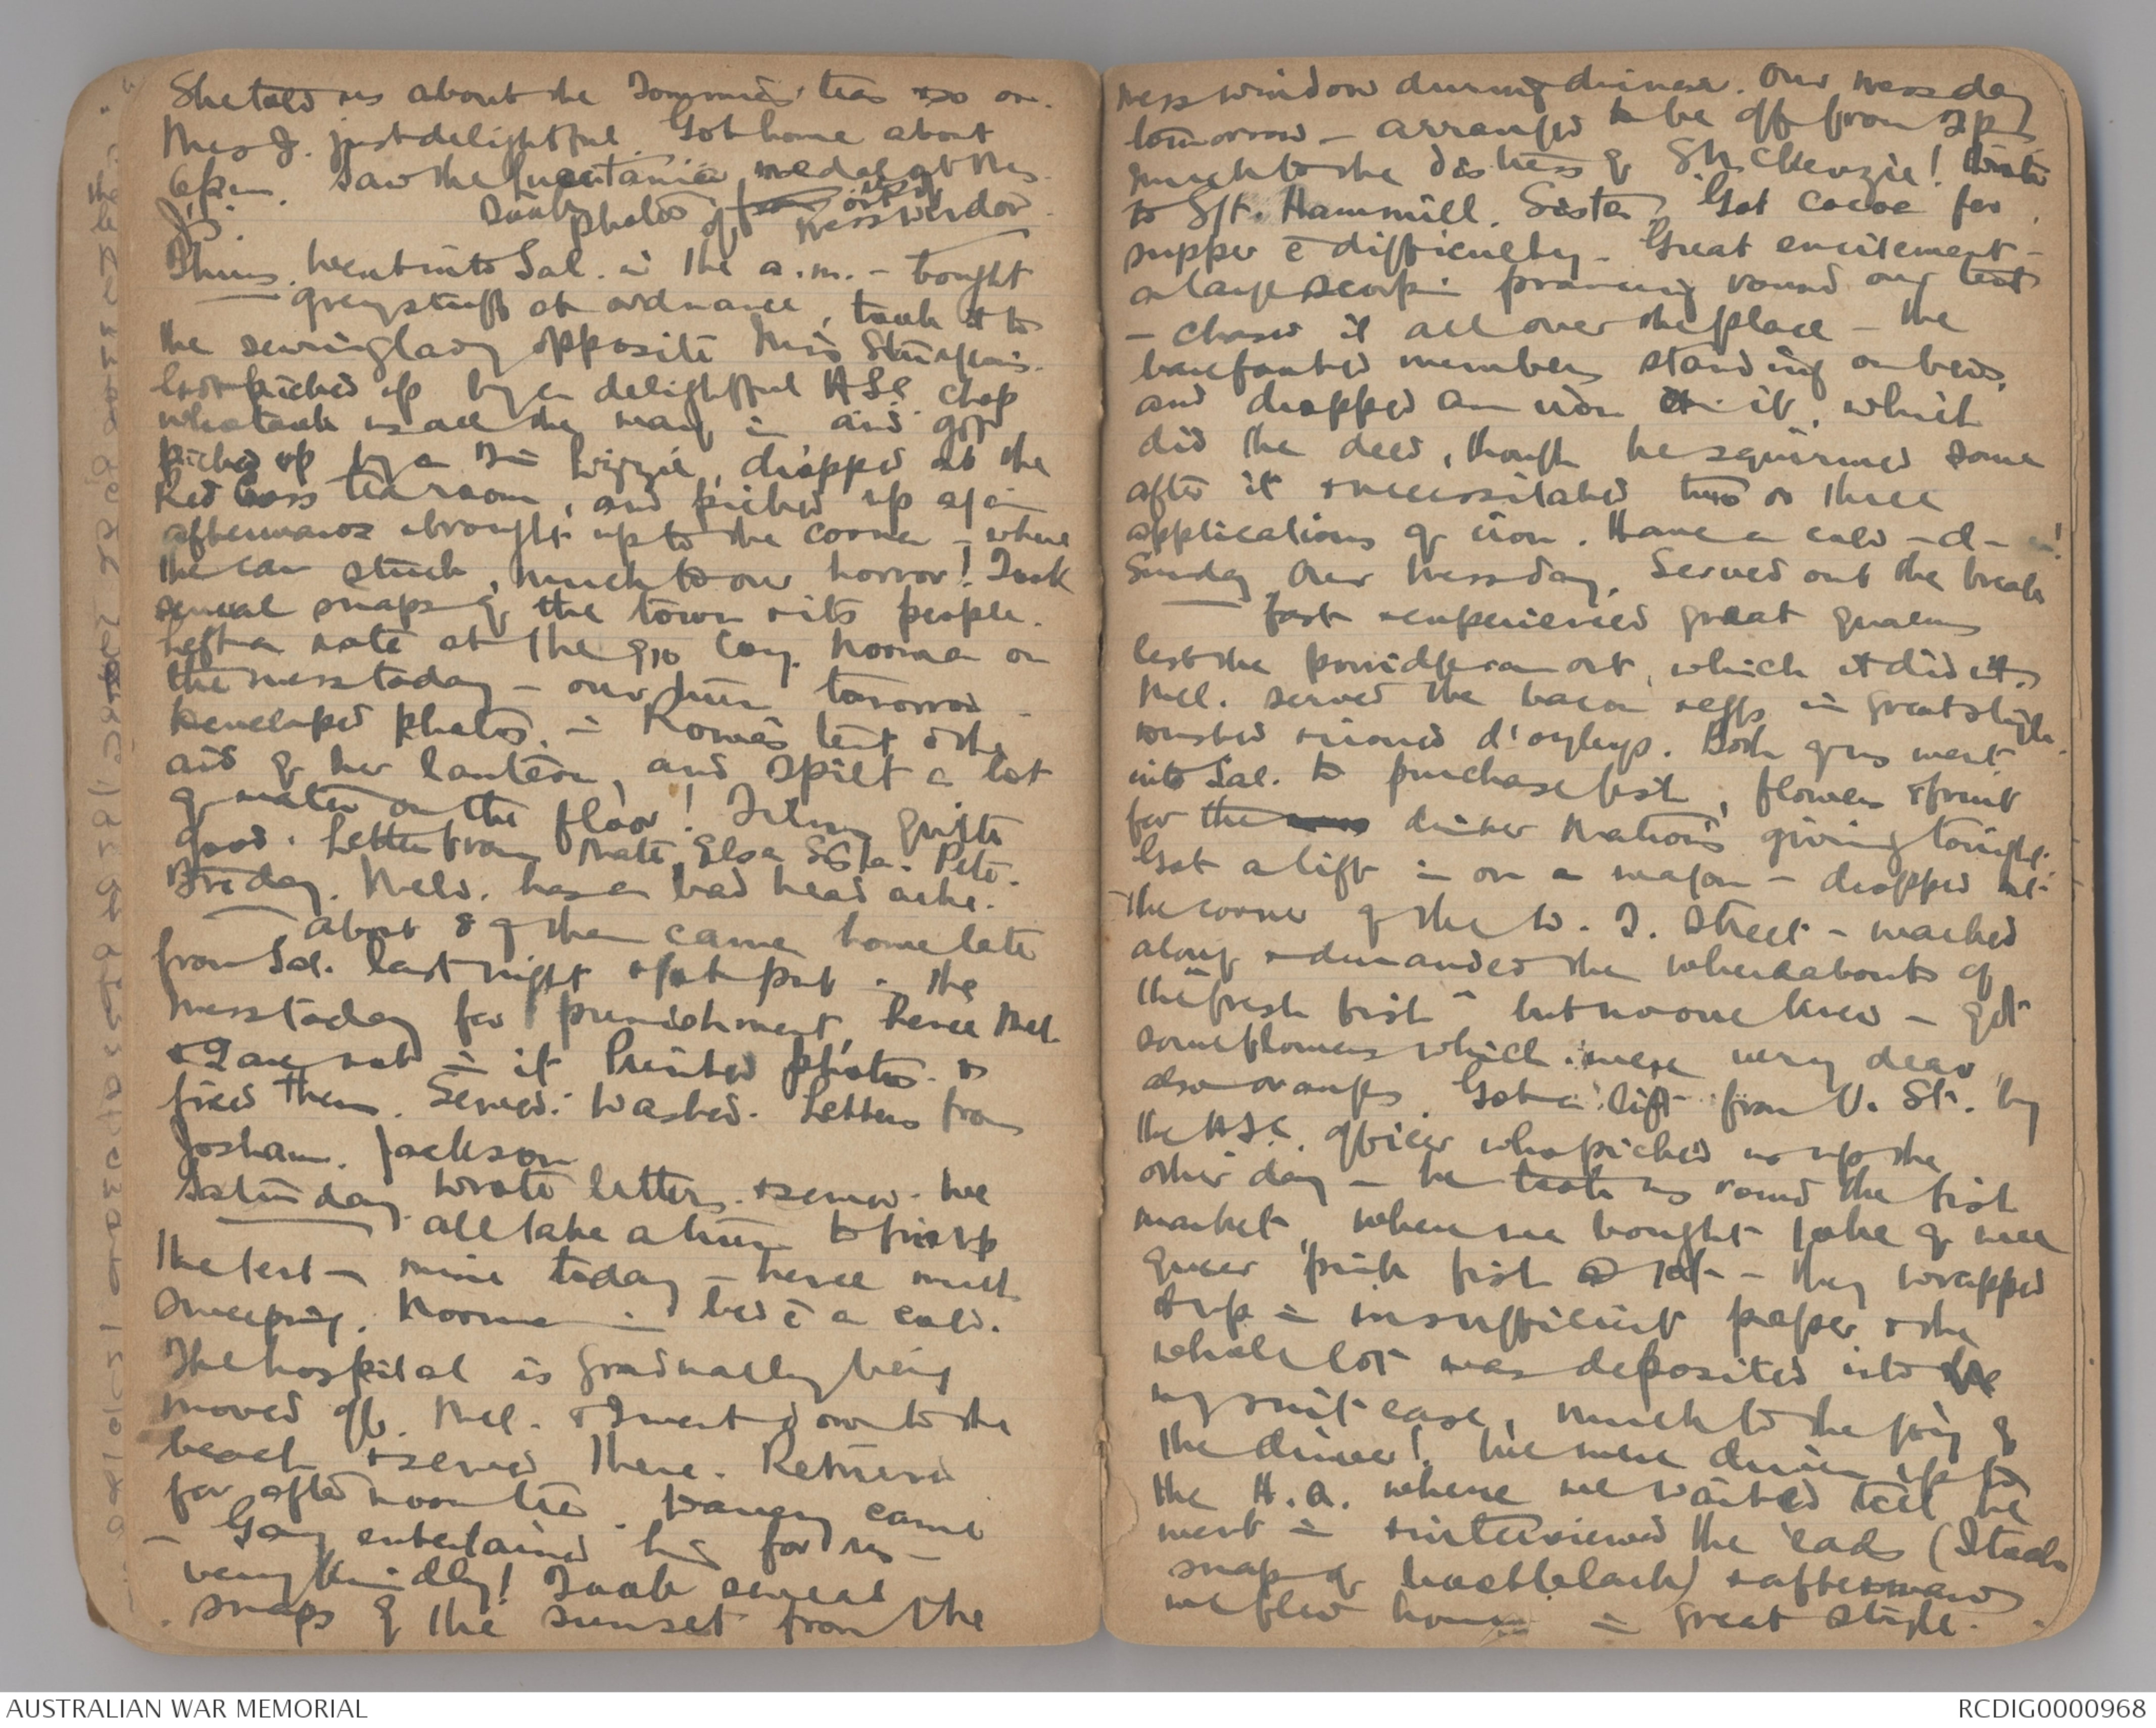 She told us about the Tommies' teas & so on.
Mrs J. just delightful. Got home about
6 p.m. Saw the Lusitania medal at Mrs
J's. Took photos of out of mess window
Thurs. Went into Sal. in the a.m. - bought
grey stuff at ordnance, took it to
the sewing lady opposite Miss
Got picked up by a delightful ASC chap
who took us all the way in and got
picked up by a Tin Lizzie, dropped at the
Red Cross tea room, and picked up again
afterwards & brought up to the corner - where
the car stuck, much to our horror! Took
several snaps of the town & its people.
Left a note at the 910 Coy. Norma on
the mess today - our turn tomorrow
Developed photos in Roma's tent & the
aid of her lantern, and spilt a lot
of water on the floor! Films quite
good. Letter from Mate, Elsa Pete.
Friday. Mels. has a bad head ache.
About 8 of them came home late
from Sal. last night & got put in the
mess today for punishment, hence Mel
& I are not in it. Printed photos &
fixed them. Sewed. Washed. Letters from
Josham. Jackson
Saturday. Wrote letters & sewed. We
all take a turn to fix up
the tent - mine today - hence much
sweeping. Norma in bed c̄ a cold.
The hospital is gradually being
moved off. Mel. & I went down to the
beach & sewed there. Returned
for afternoon tea. came
- Gay entertained him for us -
very kindly! Took several
snaps of the sunset from the
mess window during dinner. Our mess day
tomorrow - arranged to be off from 2 p.m.
much to the distress of S/N McKenzie! Wrote
to S/St. Hammill. Sister. Got cocoa for
supper c̄ difficulty. Great excitement -
a large scorp: prancing round our tent
- chased it all over the place - the
barefooted members standing on beds,
and dropped an iron on it, which
did the deed, though he squirmed some
after it & necessitated two or three
applications of iron. Have a cold - d -
Sunday Our Mess day. Served out the break
fast & experienced great qualms
lest the porridge ran out, which it did
Mel. served the bacon & eggs in great style.
Washed & ironed d'oyleys. Both of us went
into Sal. to purchase fish, flowers & fruit
for the dinner Matron's giving tonight.
Got a lift in on a wagon - dropped at
the corner of the W. T. Street - walked
along & demanded the whereabouts of
the "fresh fish" but no one knew - got
some flowers which were very dear,
also oranges. Got a lift from V. St. by
the ASC. officer who picked us up the
other day - he took us round the fish
market, where we bought 1 oke of wee
queer pink fish @ - they wrapped
it up in insufficient paper & the
whole lot was deposited into
my suit case, much to the joy of
the driver! We were driven up to
the H.Q. where we waited till he
went in & interviewed the 'eads (I took
snap of bootblack) & afterwards
we flew home in great style.
AUSTRALIAN WAR MEMORIAL
RCDIG0000968